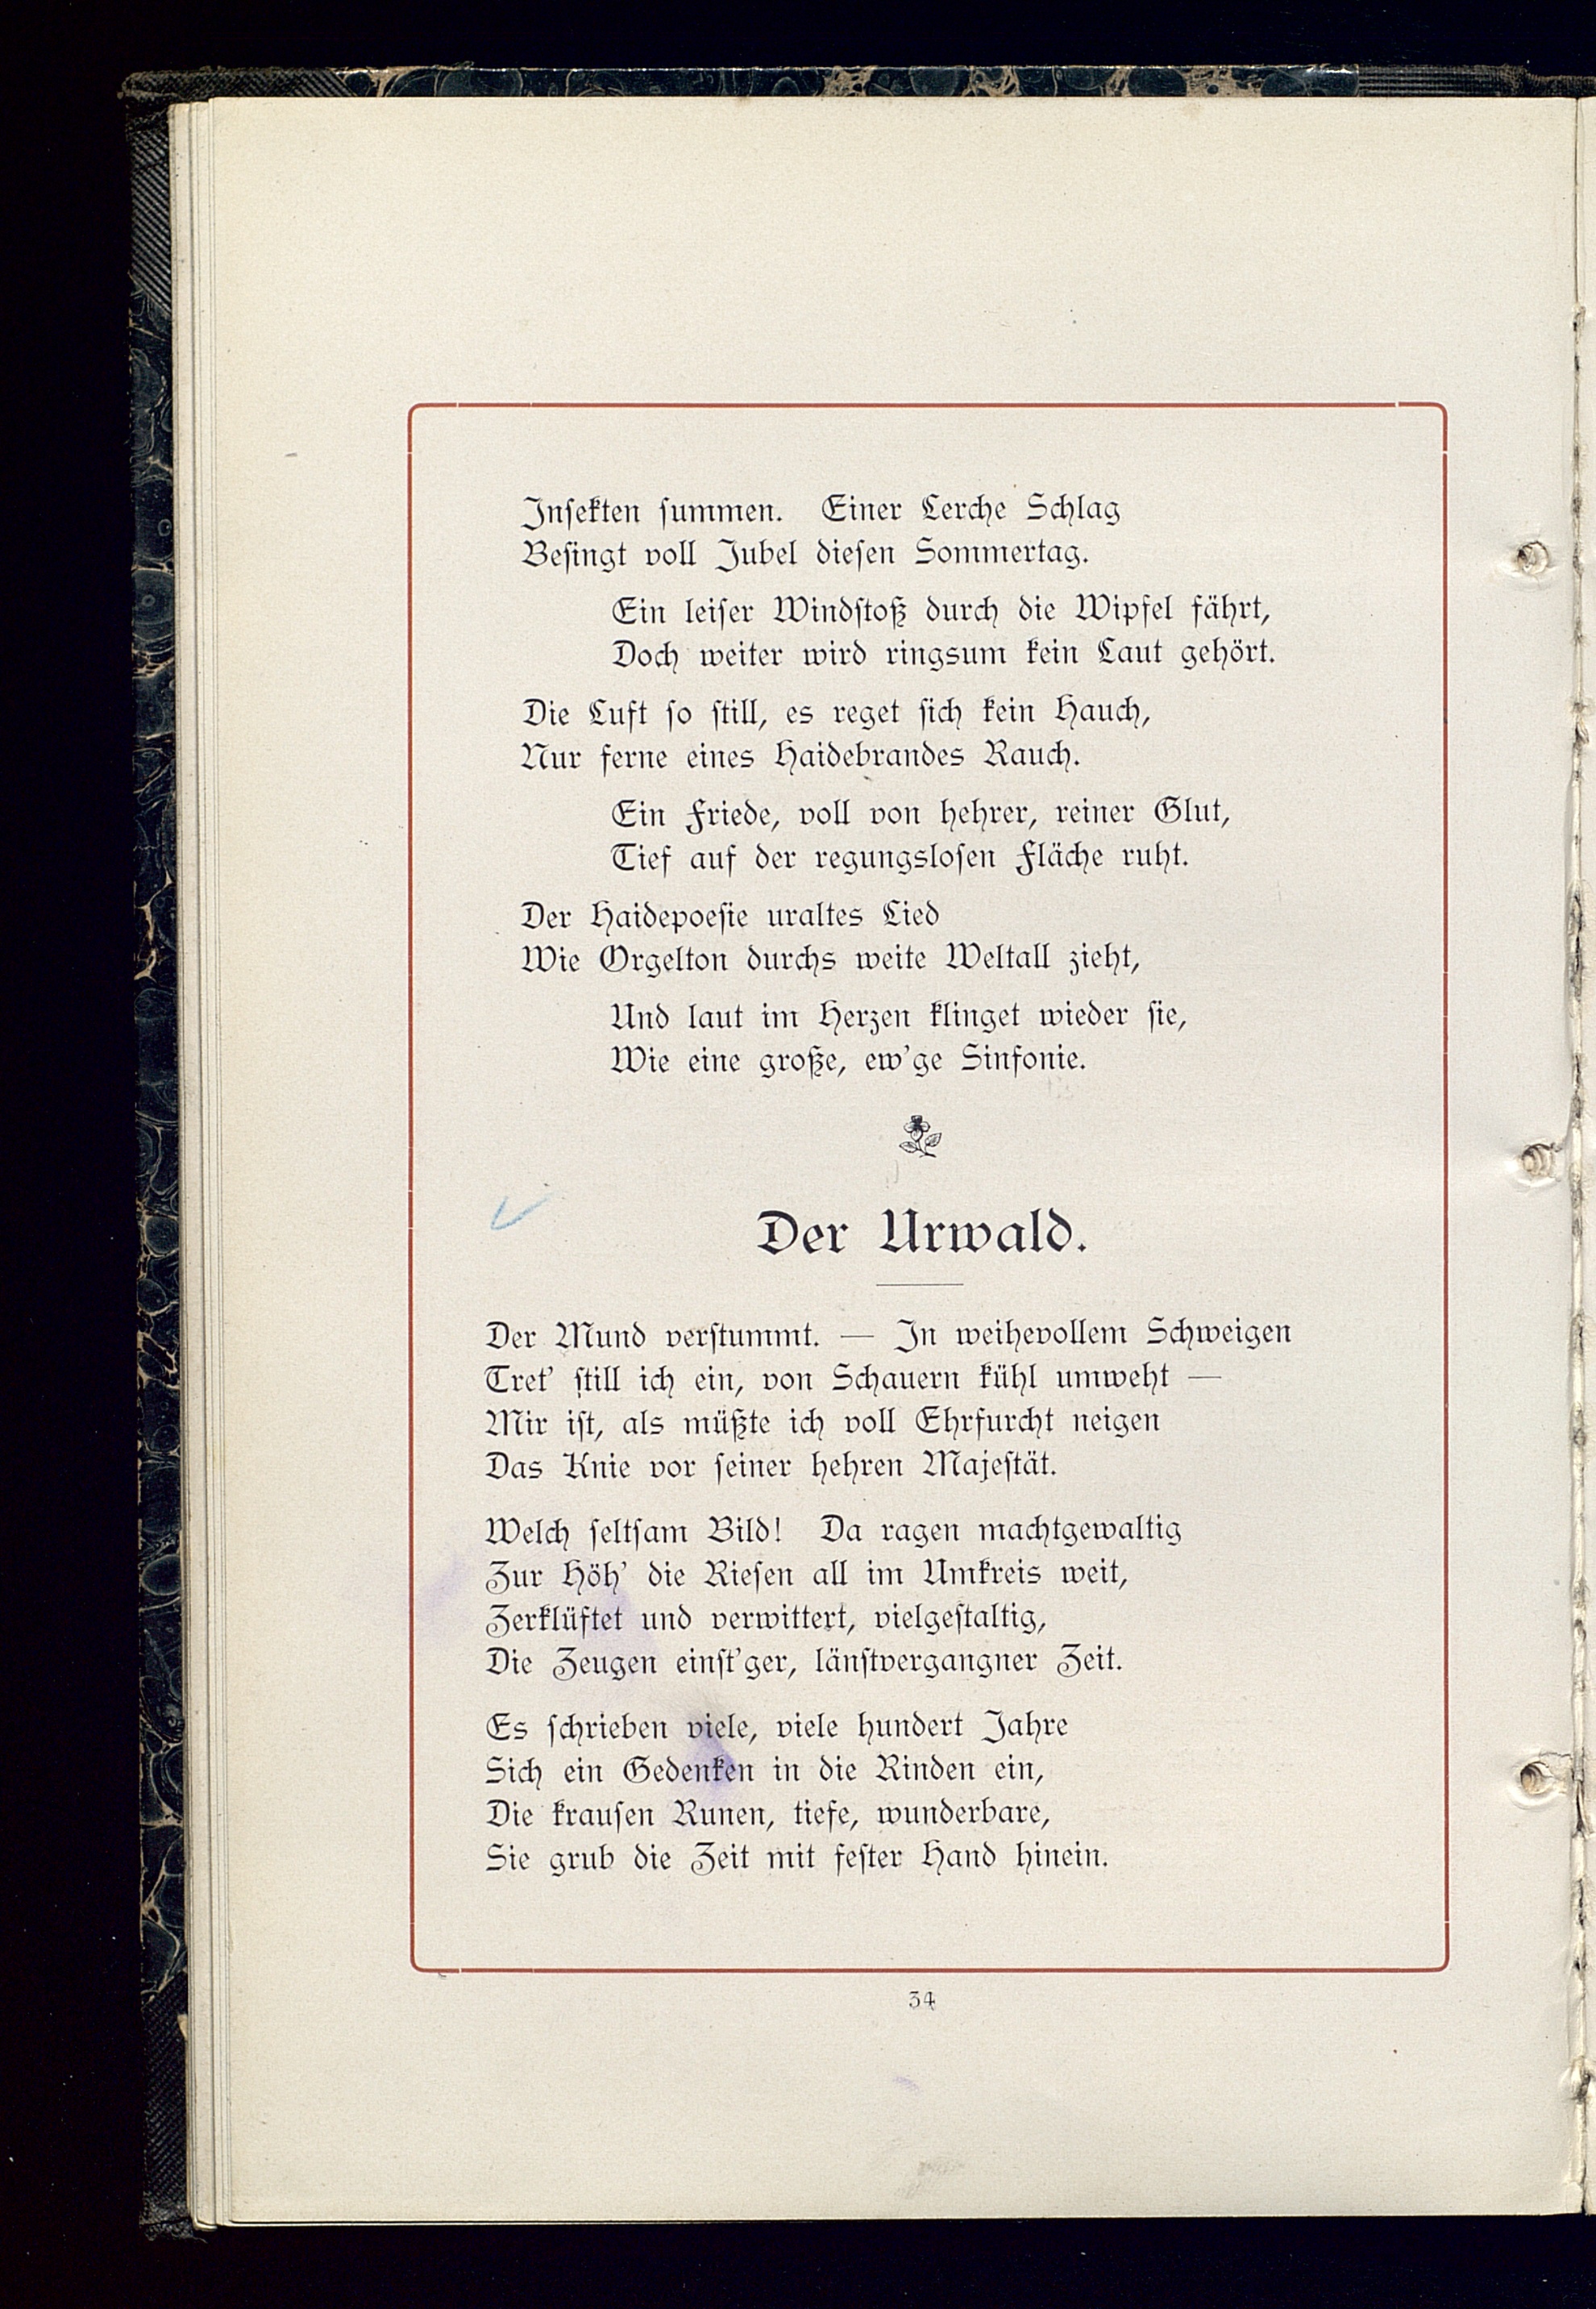 Insekten summen. Einer Lerche Schlag
Besingt voll Jubel diesen Sommertag.
Ein leiser Windstoß durch die Wipfel fährt,
Doch weiter wird ringsum kein Laut gehört.
Die Luft so still, es reget sich kein Hauch,
Nur ferne eines Haidebrandes Rauch.
Ein Friede, voll von hehrer, reiner Glut,
Tief auf der regungslosen Fläche ruht.
Der Haidepoesie uraltes Lied
Wie Orgelton durchs weite Weltall zieht,
Und laut im Herzen klinget wieder sie,
Wie eine große, ew'ge Sinfonie.
Der Urwald.
Der Mund verstummt. — In weihevollem Schweigen
Tret' still ich ein, von Schauern kühl umweht —
Mir ist, als müßte ich voll Ehrfurcht neigen
Das Knie vor seiner hehren Majestät.
Welch seltsam Bild! Da ragen machtgewaltig
Zur Höh' die Riesen all im Umkreis weit,
Zerklüftet und verwittert, vielgestaltig,
Die Zeugen einst'ger, länstvergangner Zeit.
Es schrieben viele, viele hundert Jahre
Sich ein Gedenken in die Rinden ein,
Die krausen Runen, tiefe, wunderbare,
Sie grub die Zeit mit fester Hand hinein.
34